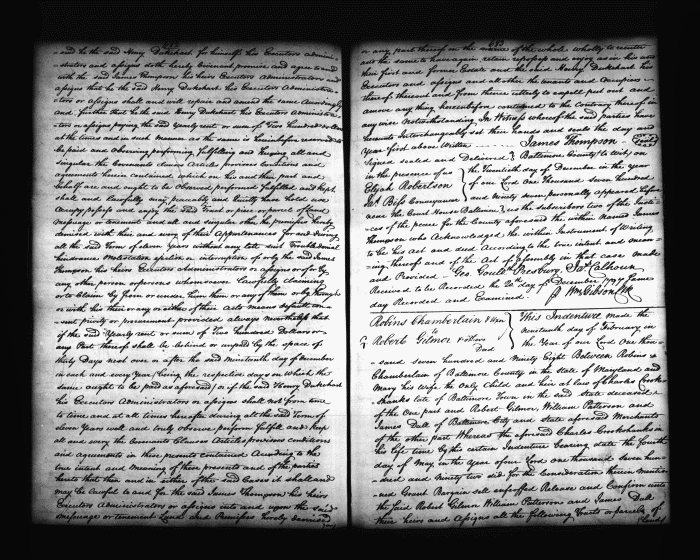 said he the said Henry Dukehart for himself his Executors adminis
strators and assigns doth hereby Covenant promise and agree to and
with the said James Thompson his heirs Executors Administrators and
assigns that he the said Henry Dukehart his Executors Administra
tors or assigns shall and will repair and amend the same Accordingly
and further that he the said Henry Dukehart his Executors Administra
tors or assigns paying the said Yearly rent or sum of Two hundred Dollars
at the times and in the manner as the same is herein before reserved to
be paid and observing performing fulfilling and keeping all and
singular the Covenants clauses articles provisoes conditions and
agreements herein contained which on his and their part and
behalf are and ought to be Observed performed fulfilled and kept
shall and Lawfully may peaceably and Quietly have hold use
Occupy possess and enjoy the said Tract or piece or parcel of Land
messuage or tenement and all and singular other the premises hereby
demised with their and every of their Appurtenances for and during
all the said Term of eleven Years without any lett suit Trouble denial
hindrance Molestation ejection or interruption of or by the said James
Thompson his heirs Executors Administrators or assigns or of or by
any other person or persons whomsoever Lawfully claiming
or to Claim by from or under him them or any of them or by through
or with his their or any or either of their Acts means default con
sent privity or procurement provided always nevertheless that
if the said Yearly rent or sum of Two hundred Dollars or
any Part thereof shall be behind or unpaid by the space of
thirty Days next over or after the said nineteenth day of December
in each and every Year, being the respective days on which the
same ought to be paid as aforesaid, or if the said Henry Dukehart
his Executors Administrators or assigns shall not from time
to time and at all times hereafter during all the said Term of
eleven Years well and truly observe perform fulfill and keep
all and every the Covenants Clauses Articles provisions conditions
and agreements in these presents contained According to the
true intent and Meaning of these presents and of the parties
hereto that then and in either of the said Cases it shall and
may be Lawful to and for the said James Thompson his heirs
Executors Administrators or assigns into and upon the said
messuage or tenement Land and Premises hereby demised
or any part thereof in the name of the whole wholly to reenter
and the same to have again retain repossess and enjoy as in his and
their first and former Estate and the said Henry Dukehart his
Executors and assigns and all other the tenants and Occupiers
thereof thereout and from thence utterly to expell put out and
amove any thing hereinbefore contained to the Contrary thereof in
any wise Notwithstanding In Witness whereof the said parties have
hereunto Interchangeably set their hands and seals the day and
Year first above Written James Thompson
Signed sealed and Delivered Baltimore County to wit on
in the presence of us the Twentieth day of December in the year
Elijah Robertson of our Lord One Thousand seven hundred
and Ninety seven personally appeared before
near the Court House Baltimore us the subscribers two of the Justi
ces of the peace for the County aforesaid the within Named James
Thompson who Acknowledged the within Instrument of Writing
to be his Act and deed According to the true intent and mean
ing thereof and of the Act of Assembly in that case made
and Provided Geo. Gouldr Presbury Jas. Calhoun
Received to be Recorded the 20th day of December 1797 Same
day Recorded and Examined Wm Gibson Clk
Robins Chamberlain & Uxor
Robert Gilmor & others
Deed
This Indenture made the
nineteenth day of February in
the Year of our Lord One thou
sand seven hundred and Ninety Eight Between Robins
Chamberlain of Baltimore County in the state of Maryland and
Mary his Wife the Only Child and heir at law of Charles Crook
shanks late of Baltimore Town in the said state deceased
of the One part and Robert Gilmor William Patterson and
James Dall of Baltimore City and State aforesaid Merchants
of the other part Whereas the aforesaid Charles Crookshanks in
his life time by his certain Indenture bearing date the fourth
day of May in the Year of our Lord one thousand Seven hun
dred and Ninety two did for the Consideration therein Mention
ed Grant Bargain sell enfeoffed Release and Confirm unto
the said Robert Gilmor William Patterson and James Dall
their heirs and Assigns all the following Tracts or parcels of
Land